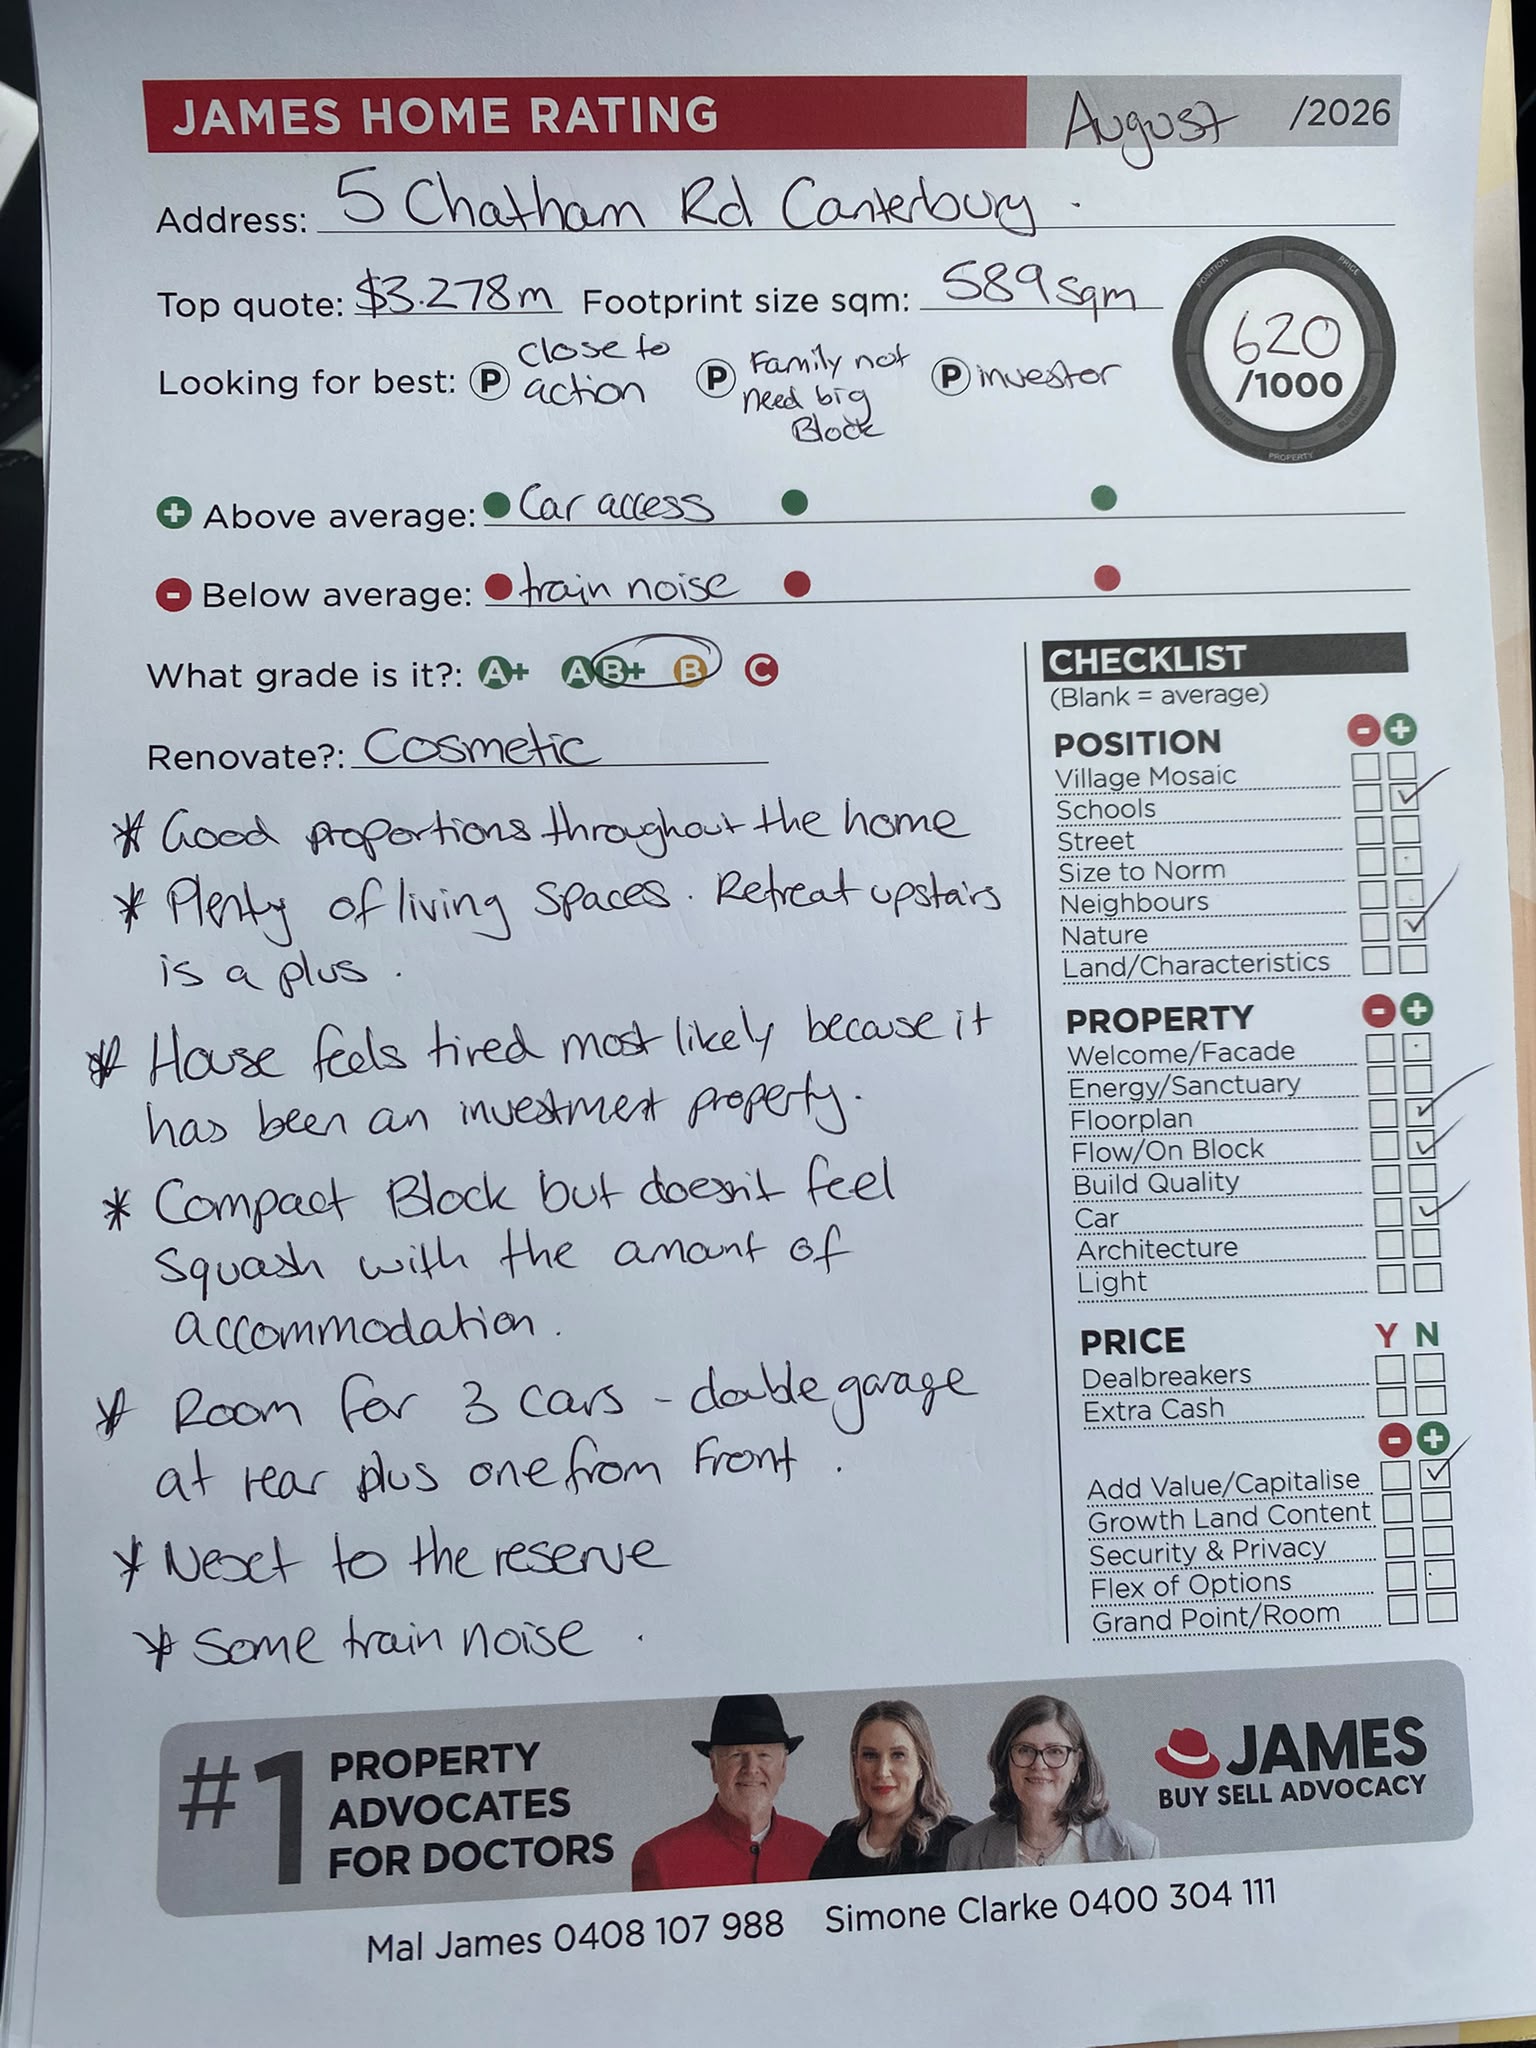 JAMES HOME RATING August /2026
Address: 5 Chatham Rd Canterbury.
Top quote: $3.278m Footprint size sqm: 589sqm
POSITION PRICE LAND BUILDING PROPERTY
620
/1000
Looking for best: P close to action P Family not need big Block P investor
+ Above average: Car access
- Below average: train noise
What grade is it?: A+ A B+ B C
Renovate?: Cosmetic
* Good proportions throughout the home
* Plenty of living spaces. Retreat upstairs
is a plus.
* House feels tired most likely because it
has been an investment property.
* Compact Block but doesn't feel
squash with the amount of
accommodation.
* Room for 3 cars - double garage
at rear plus one from Front.
* Next to the reserve
* Some train noise.
CHECKLIST
(Blank = average)
POSITION - +
Village Mosaic
Schools ✓
Street
Size to Norm
Neighbours
Nature ✓
Land/Characteristics
PROPERTY - +
Welcome/Facade
Energy/Sanctuary
Floorplan ✓
Flow/On Block ✓
Build Quality
Car ✓
Architecture
Light
PRICE Y N
Dealbreakers
Extra Cash
- +
Add Value/Capitalise ✓
Growth Land Content
Security & Privacy
Flex of Options
Grand Point/Room
#1 PROPERTY
ADVOCATES
FOR DOCTORS
JAMES
BUY SELL ADVOCACY
Mal James 0408 107 988 Simone Clarke 0400 304 111